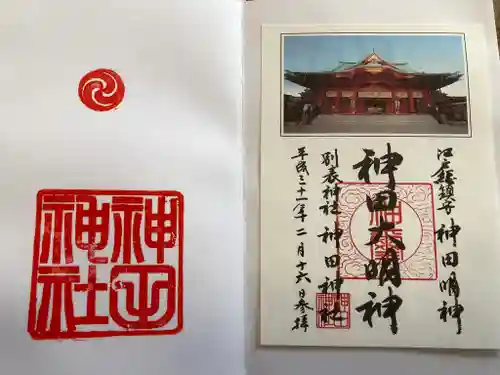 江戸総鎮守 神田明神
神田大明神
別表神社 神田神社
平成三十一年二月十六日参拝
神田
神社